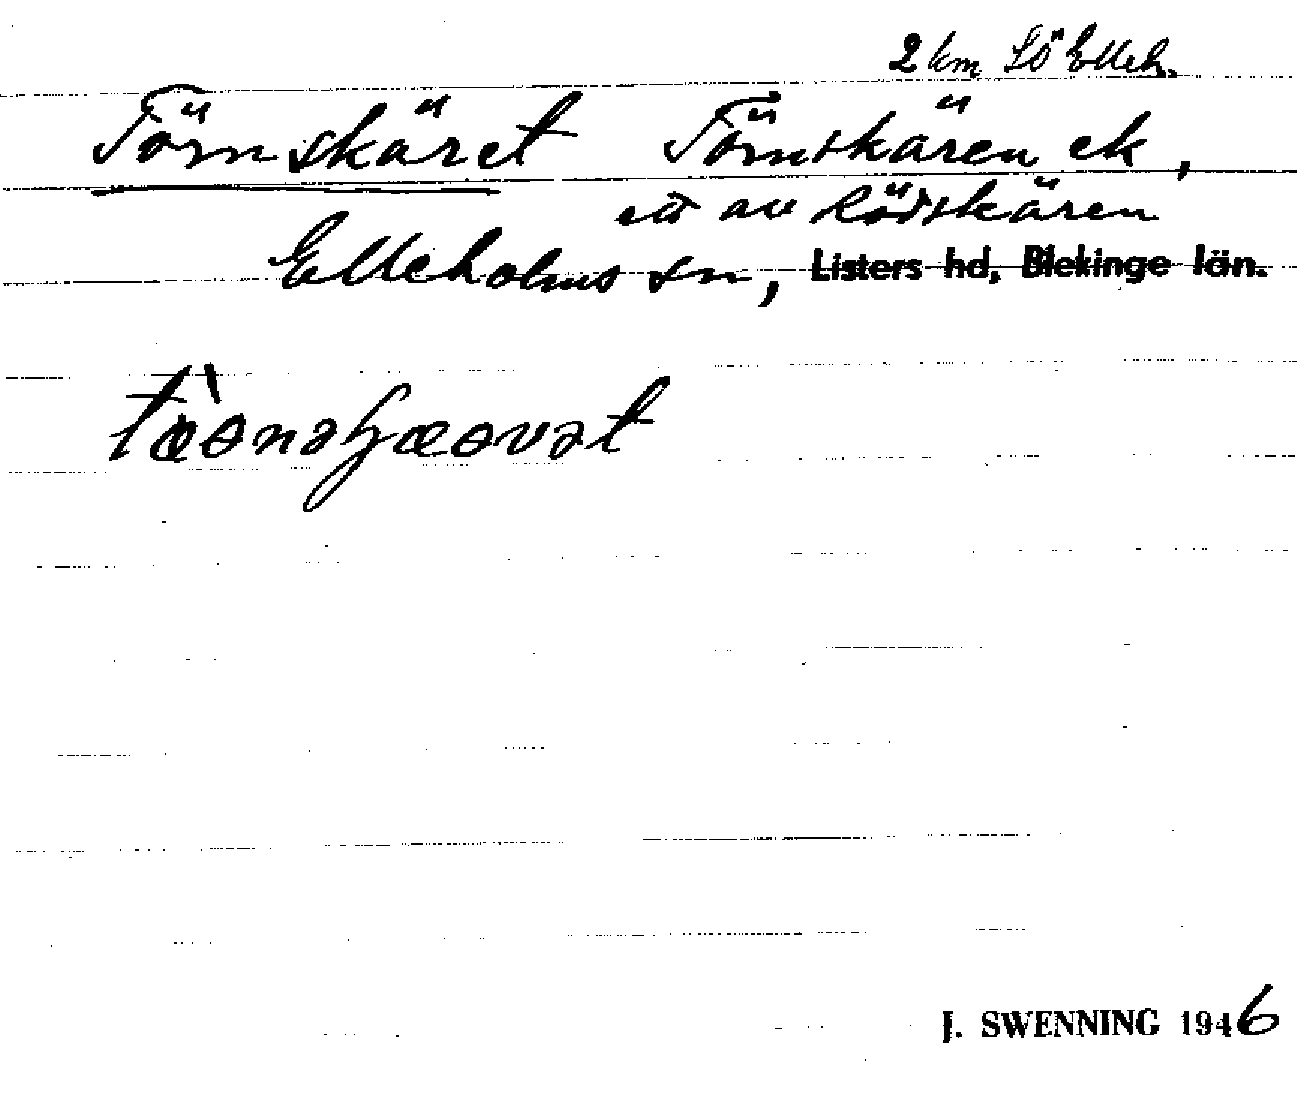 2 km SÖ Elleh.
Törnskäret Törnskären ek,
ett av Rödskären
Elleholms sn, Listers hd, Blekinge län.
J. SWENNING 1946